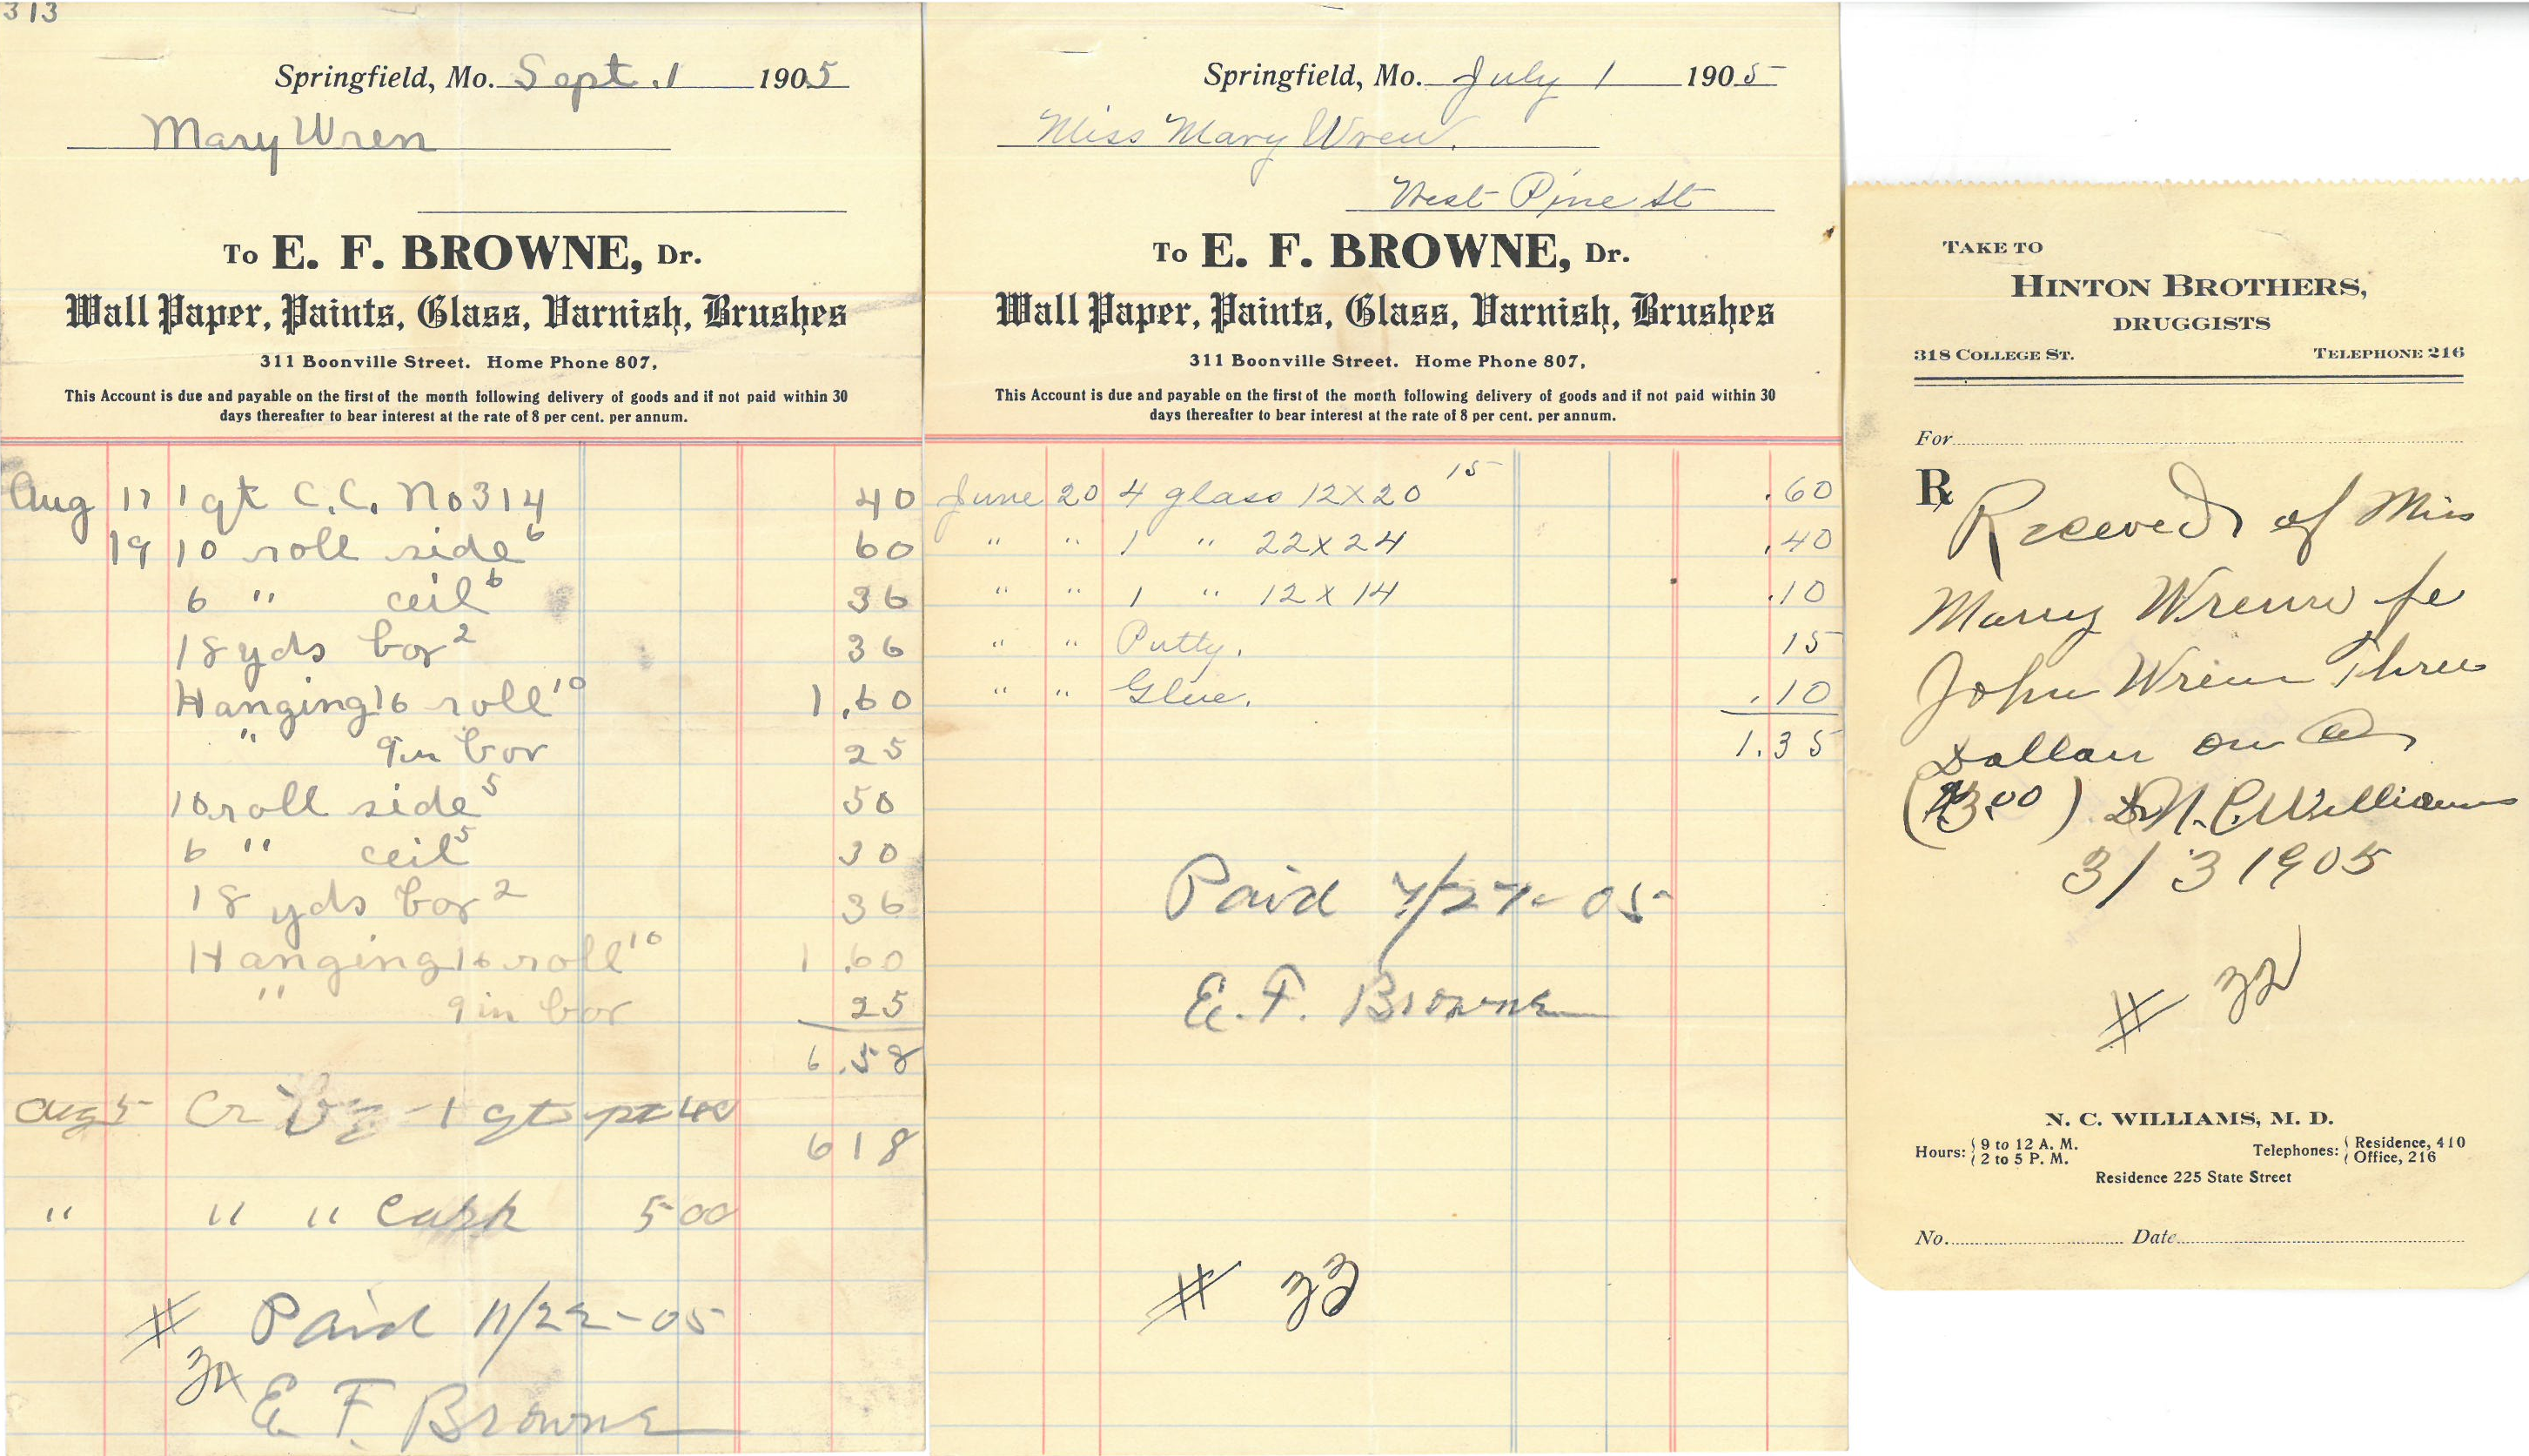 313
Springfield, Mo. Sept. 1 1905
Mary Wren
To E. F. BROWNE, Dr.
Wall Paper, Paints, Glass, Varnish, Brushes
311 Boonville Street. Home Phone 807,
This Account is due and payable on the first of the month following delivery of goods and if not paid within 30
days thereafter to bear interest at the rate of 8 per cent. per annum.
Aug 17 1 qt C.C. No 314 40
19 10 roll side 6 60
6 " ceil 6 36
18 yds bor 2 36
Hanging 16 roll 10 1.60
" 9 in bor 25
10 roll side 5 50
6 " ceil 5 30
18 yds bor 2 36
Hanging 16 roll 10 1.60
" 9 in bor 25
6.58
Aug 5 Cr By 1 qt pt 40
6 18
" " " Cash 5 00
# Paid 11/22-05
34
E F. Browne
Springfield, Mo. July 1 1905
Miss Mary Wren.
West Pine St
To E. F. BROWNE, Dr.
Wall Paper, Paints, Glass, Varnish, Brushes
311 Boonville Street. Home Phone 807,
This Account is due and payable on the first of the month following delivery of goods and if not paid within 30
days thereafter to bear interest at the rate of 8 per cent. per annum.
June 20 4 glass 12X20 15 .60
" " 1 " 22X24 .40
" " 1 " 12X14 .10
" " Putty. 15
" " Glue. .10
1.35
Paid 7/27-05
E. F. Browne
# 33
TAKE TO
HINTON BROTHERS,
DRUGGISTS
318 COLLEGE ST. TELEPHONE 216
For
℞ Received of Miss
Mary Wrenn fe
John Wrenn Three
Dollars on
($3.00) Dr N. C. Williams
3/3 1905
# 32
N. C. WILLIAMS, M. D.
Hours: 9 to 12 A. M. Telephones: Residence, 410
2 to 5 P. M. Office, 216
Residence 225 State Street
No. Date